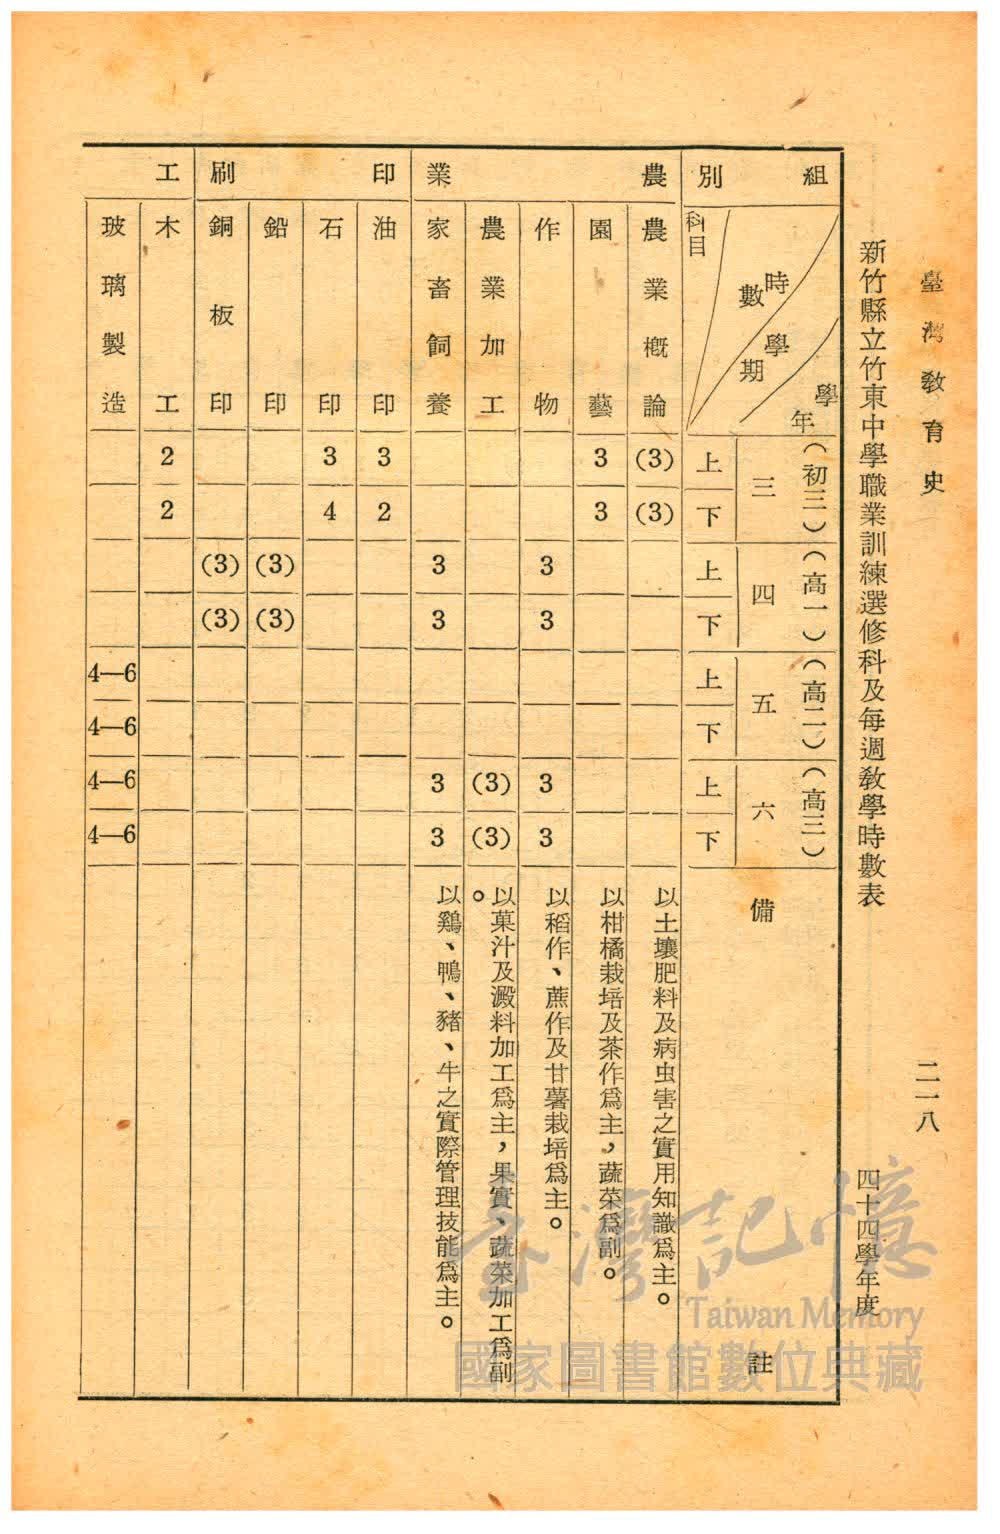 臺灣教育史
二一八
新竹縣立竹東中學職業訓練選修科及每週教學時數表
四十四學年度
組別
學年
學期
時數
科目
三（初三）
上
下
四（高一）
上
下
五（高二）
上
下
六（高三）
上
下
備註
農業
農業概論
(3)
(3)
以土壤肥料及病虫害之實用知識爲主。
園藝
3
3
以柑橘栽培及茶作爲主，蔬菜爲副。
作物
3
3
3
3
以稻作、蔗作及甘薯栽培爲主。
農業加工
(3)
(3)
以菓汁及澱料加工爲主，果實、蔬菜加工爲副。
家畜飼養
3
3
3
3
以鷄、鴨、豬、牛之實際管理技能爲主。
印刷
油印
3
2
石印
3
4
鉛印
(3)
(3)
銅板印
(3)
(3)
工
木工
2
2
玻璃製造
4—6
4—6
4—6
4—6
臺灣記憶
Taiwan Memory
國家圖書館數位典藏